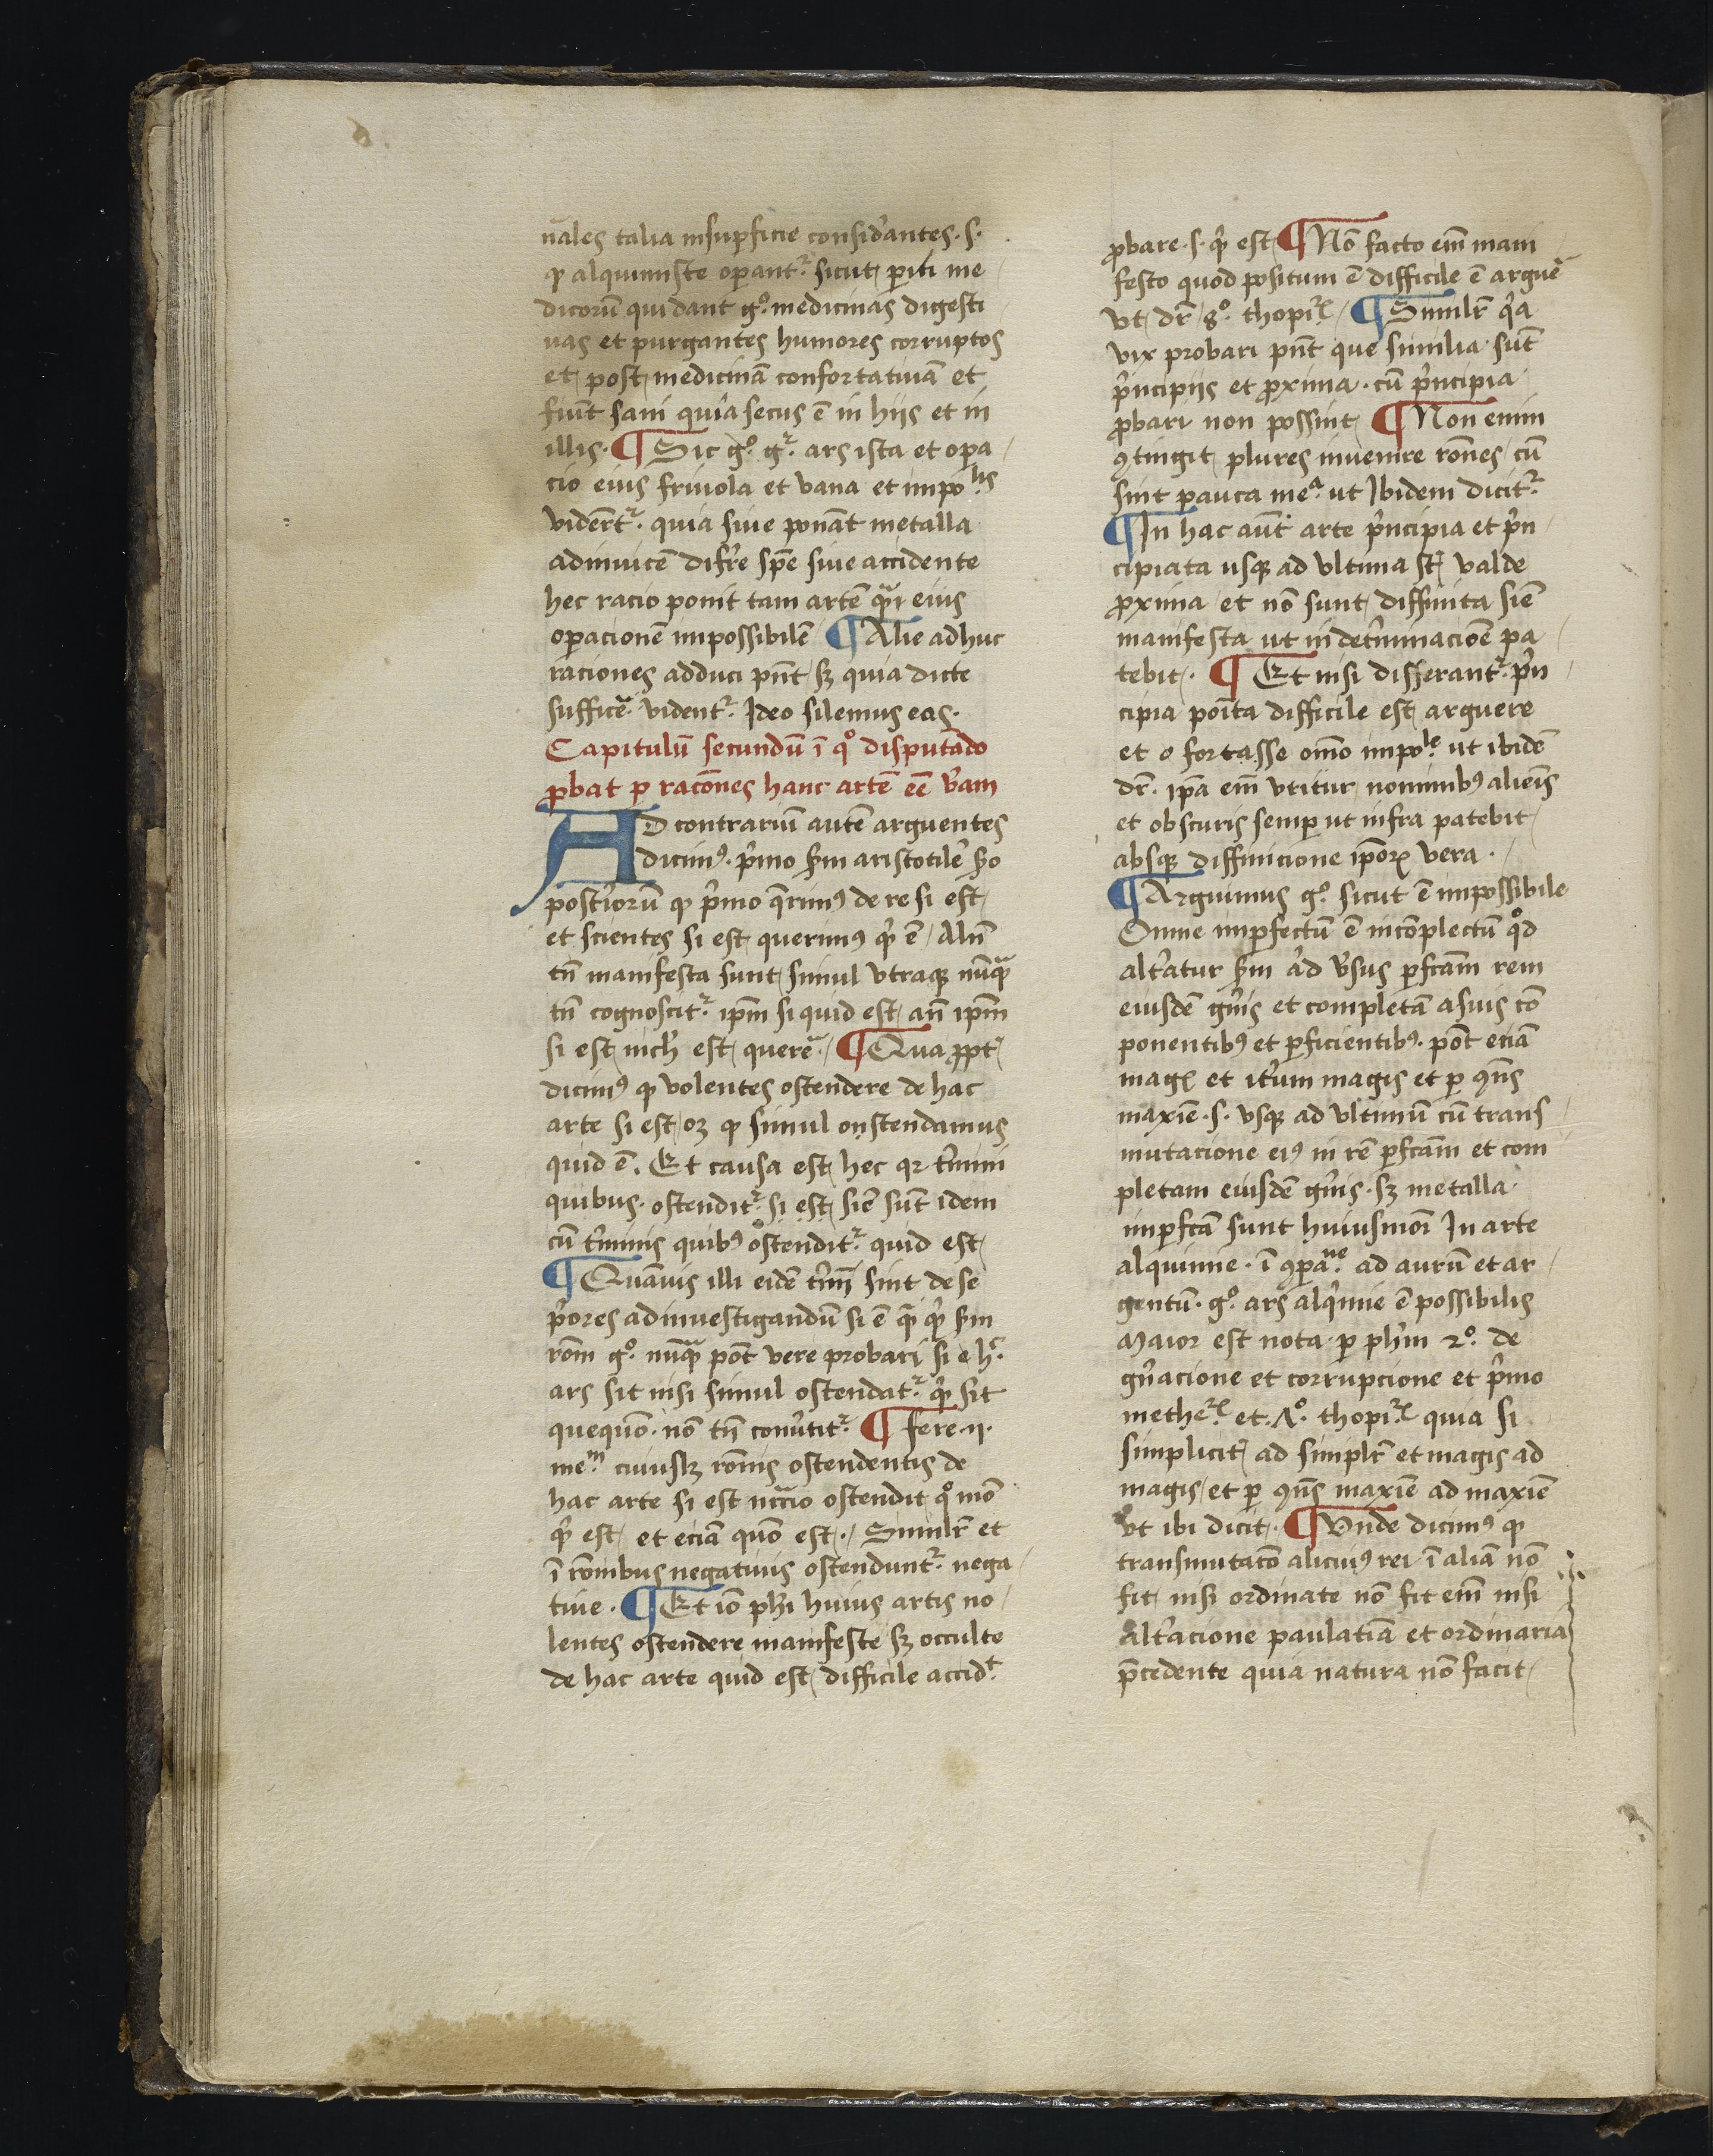 nales talia in suꝑficie considˀantes · s ·
ꝙ alquimiste oꝑantᷣ · sicut ꝑiti me
dicorū qui dant gͦ · medicinas digesti
uas et purgantes humores corruptos
et post medicinā confortatiuā et
fiūt sani quia secus ē in hijs et in
illis · ¶ Sic gͦ · gᷣ · ars ista et oꝑa
cio eius friuola et vana et impolis
vidēṙtᷣ · quia siue ponāt metalla
adinuicē difr̄e sp̄e siue accidente
hec racio ponit tam artē q̄ꝫ eius
oꝑacionē impossibilē ¶ Alie adhuc
raciones adduci pn̄t sꝫ quia dicte
sufficē · videntᷣ · Ideo silemus eas ·
Capitulū secundū ī qͦ disputādo
ꝓbat ꝑ racōnes hanc artē eē vˀam
AD contrariū autē arguentes
dicimꝰ · pˀmo ẜm aristotilē ẜo
postˀiorū ꝙ pˀmo q̄rimꝰ de re si est
et scientes si est querimꝰ qͥd ē / Aln̄
tn̄ manifesta sunt simul vtraqꝫ nūqᷓ
tn̄ cognoscitᷣ · ip̄m si quid est / an̄ ip̄m
si est nichˀ est querē / ¶ Qua ꝓptˀ
dicimꝰ ꝙ volentes ostendere de hac
arte si est / oꝫ ꝙ simul onstendamus
quid ē . Et causa est hec qꝛ tˀmini
quibus · ostenditᷣ · si est siē sūt idem
cū tˀminis quibꝰ ostenditᷣ · quid est
¶ Quāuis illi eidē tˀmī sint de se
pˀores ad inuestigandū si ē qᷓ qͥd ẜm
rōm gͦ · nūqᷓ pōt vere probari si e hᷣ ·
ars sit nisi simul ostendatᷣ · qͥd sit
quequō · nō tn̄ conˀutitᷣ · ¶ fere · ij ·
mem · cuiuslꝫ rōnis ostendentis de
hac arte si est nc̄cio ostendit qͦ mō
qͥd est et eciā quō est · / Similr̄ et
ī rōnibus negatiuis ostenduntᷣ · nega
tiue · ¶ Et iō phˀi huius artis no
lentes ostendere manifeste sꝫ occulte
de hac arte quid est difficile accidt ·
ꝓbare · s · qͥd est ¶ Nō facto em̄ mani
festo quod positum ē difficile ē arguē
vt dr̄ / 8ͦ · thopiꝝ / ¶ Similr̄ qˀa
vix probari pn̄t que similia sūt
pˀncipijs et ꝓxima · cū pˀncipia
ꝓbari non possint ¶ Non enim
ꝯtingit plures inuenire rōnes / cū
sint pauca mea · ut Ibidem dicitᷣ ·
¶ In hac aūt arte pˀncipia et pˀn
cipiata usqꝫ ad vltima st̄ valde
ꝓxima / et nō sunt diffinita siē
manifesta ut in detˀminacioē pa
tebit · ¶ Et nisi disserantᷣ · pˀn
cipia poīta difficile est arguere
et o fortasse om̄o impole · ut ibidē
dr̄ · ip̄a em̄ vtitur nominibꝰ alieīs
et obscuris semꝑ ut infra patebit
absqꝫ diffinicione ip̄oꝝ vera ·
¶ Arguimus gͦ · sicut ē impossibile
Omne imꝑfectū ē incōplectū qͦd
altˀatur ẜm aˀd vˀsus ꝑfcām rem
eiusdē gn̄is et completā a suis cō
ponentibꝰ et ꝑficientibꝰ · pōt eciā
magꝭ et itˀum magis et ꝑ ꝯn̄s
maxīe · s · vsqꝫ ad vltimū cū trans
mutacione eiꝰ in rē ꝑfcām et com
pletam eiusdē gn̄is · sꝫ metalla
imꝑfcā sunt huiusmōi In arte
alquimie · ī ꝯꝑane · ad aurū et ar
gentū · gͦ · ars alqˀmie ē possibilis
Maior est nota ꝑ phˀm 2ͦ · de
gn̄acione et corrupcione et pˀmo
metheꝝ · et · 4ͦ · thopiꝝ quia si
simplicitˀ ad simplr̄ et magis ad
magis / et ꝑ ꝯn̄s maxīe ad maxīe
vt ibi dicit · ¶ Vnde dicimꝰ ꝙ
transmutacō alicuiꝰ rei ī aliā nō
fit nisi ordinate nō fit em̄ nisi
altˀacione paulatiā et ordinaria
p̄cedente quia natura nō facit